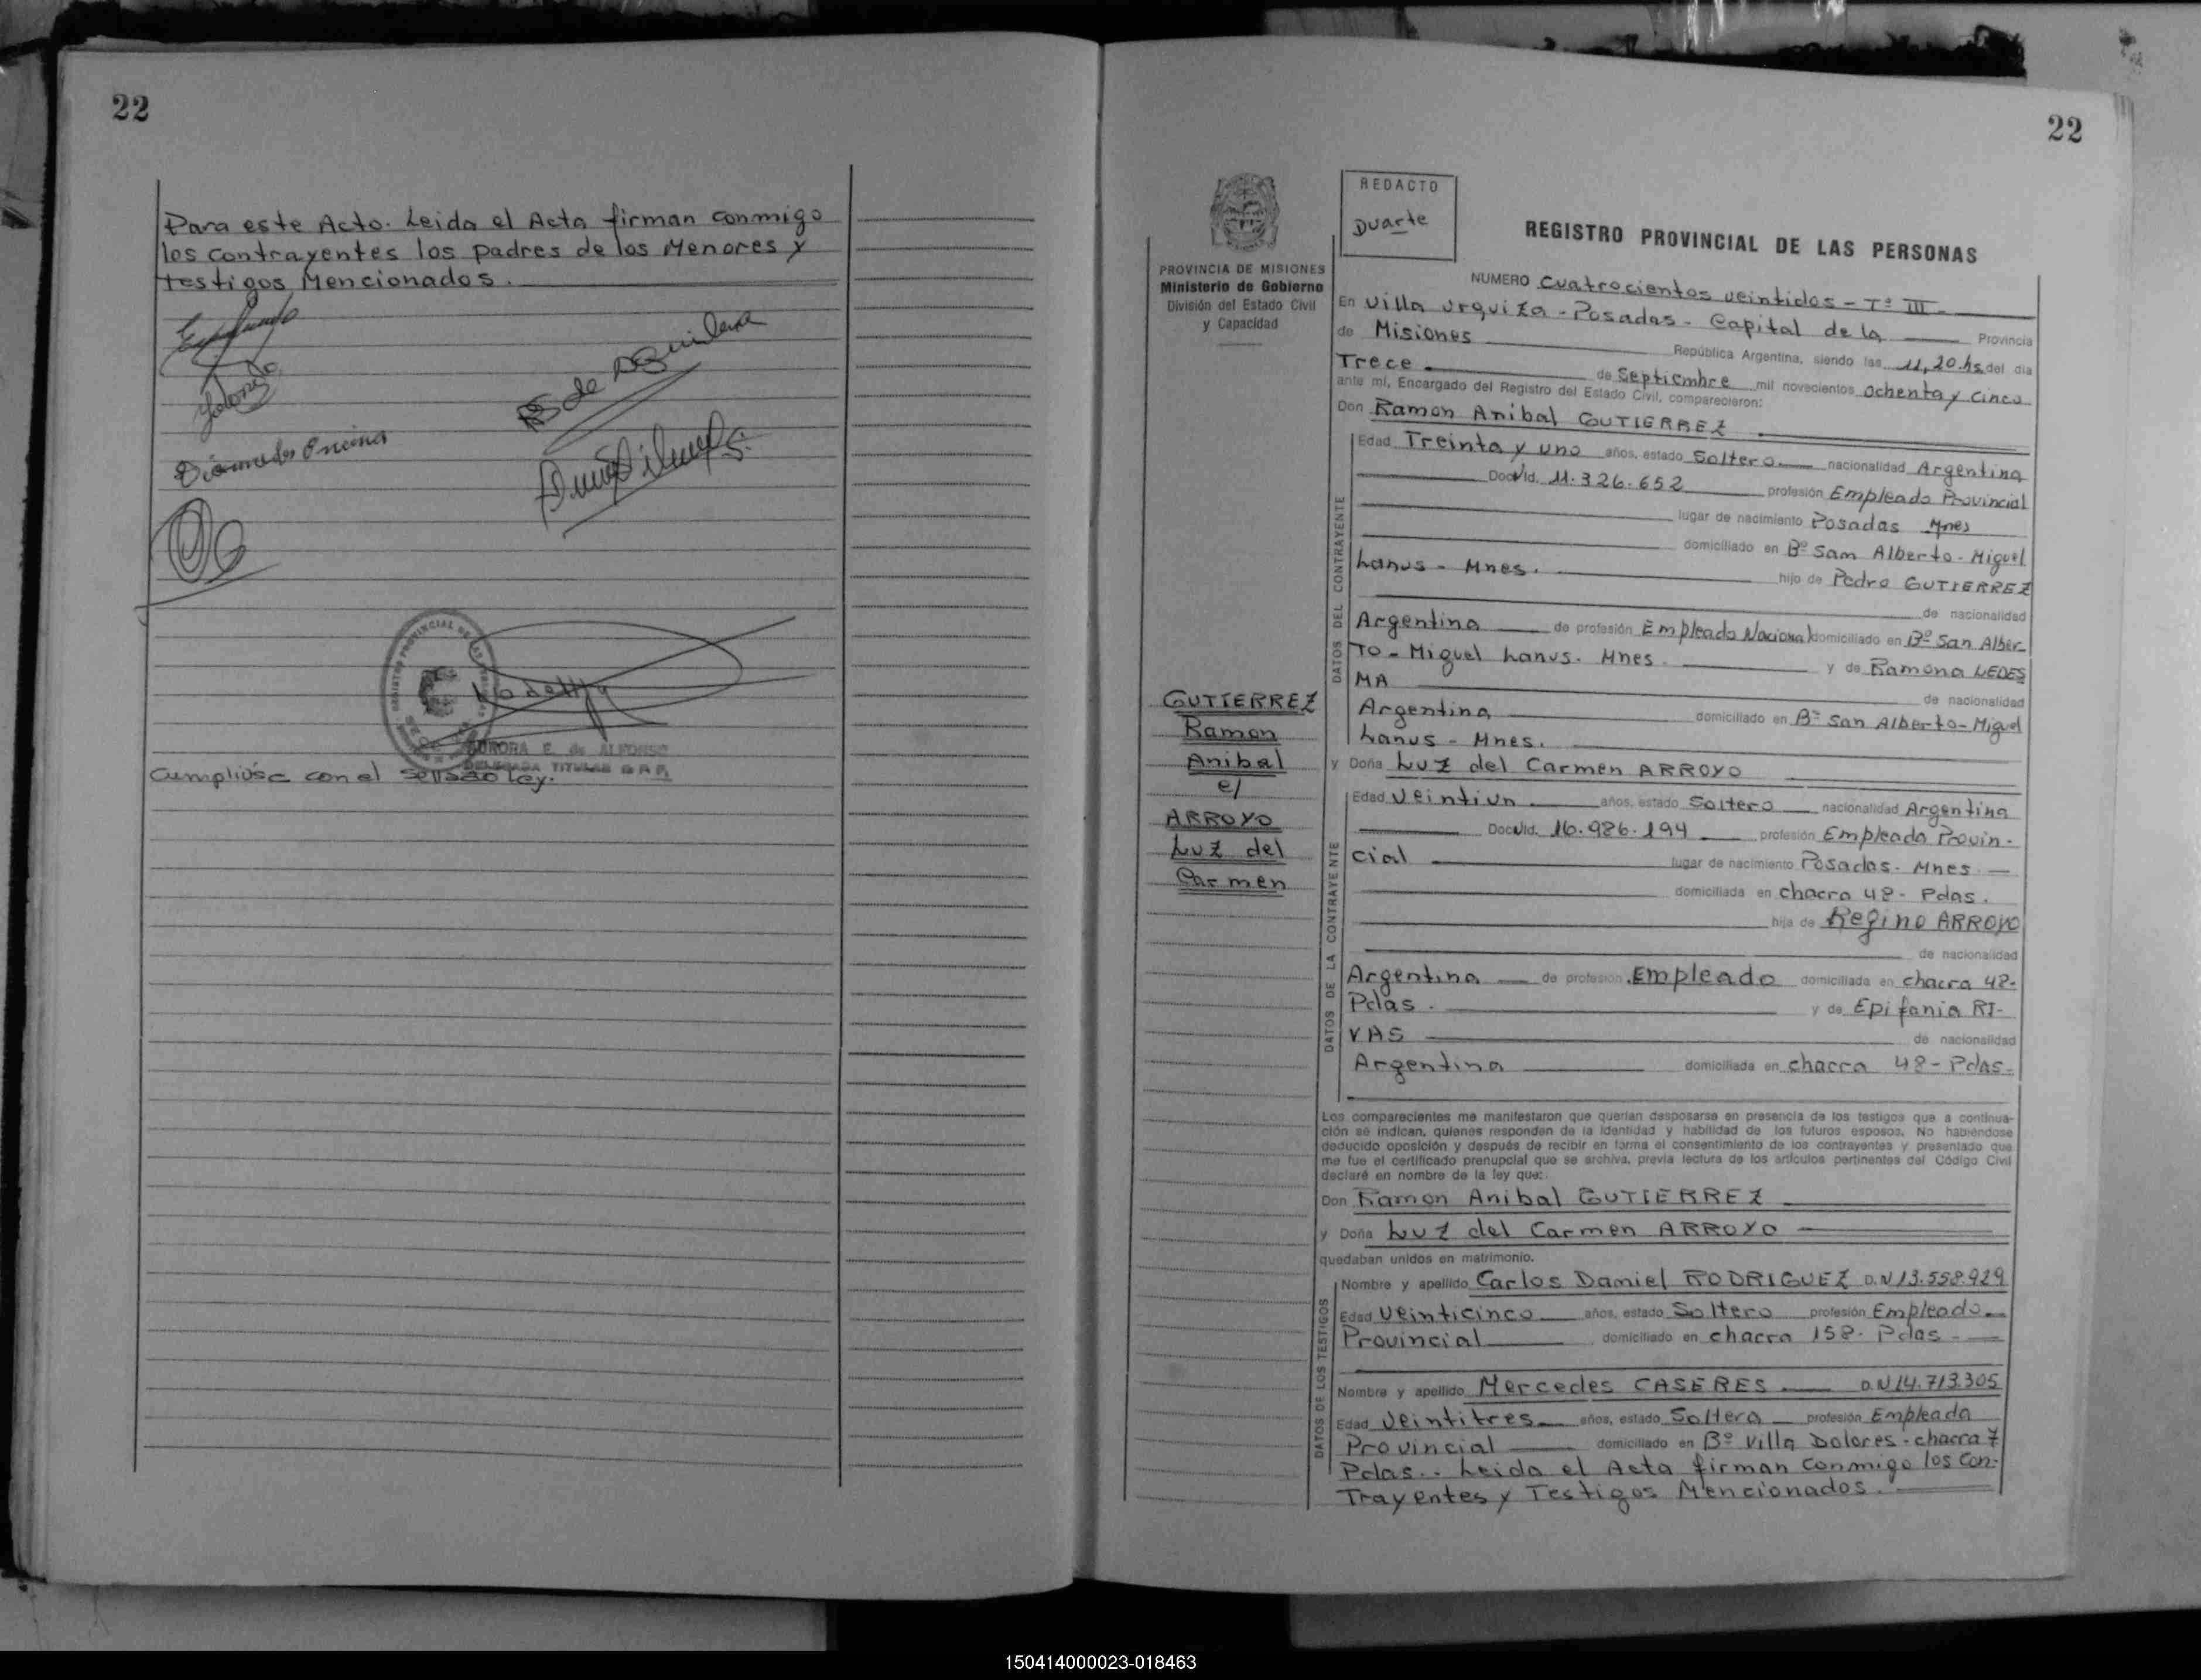 22
Para este Acto. Leida el Acta firman conmigo
los contrayentes los padres de los Menores y
testigos Mencionados.
RS de Aguilera
Diomedes Encina
REGISTRO PROVINCIAL DE LAS
AURORA E. de ALFONSO
DELEGADA TITULAR
Cumplióse con el sellado Ley.
22
REDACTO
Duarte
REGISTRO PROVINCIAL DE LAS PERSONAS
PROVINCIA DE MISIONES
Ministerio de Gobierno
División del Estado Civil
y Capacidad
NUMERO Cuatrocientos veintidos - Tº III -
En Villa Urquiza - Posadas - Capital de la Provincia
de Misiones República Argentina, siendo las 11,20 hs del día
Trece de Septiembre mil novecientos ochenta y cinco
ante mí, Encargado del Registro del Estado Civil, comparecieron:
Don Ramon Anibal GUTIERREZ
DATOS DEL CONTRAYENTE
Edad Treinta y uno años, estado Soltero nacionalidad Argentina
Doc. Id. 11.326.652 profesión Empleado Provincial
lugar de nacimiento Posadas Mnes
domiciliado en Bº San Alberto - Miguel
Lanus - Mnes. hijo de Pedro GUTIERREZ
de nacionalidad
Argentina de profesión Empleado Nacional domiciliado en Bº San Alber
To - Miguel Lanus. Mnes. y de Ramona LEDES
MA de nacionalidad
Argentina domiciliado en Bº San Alberto - Miguel
Lanus - Mnes.
GUTIERREZ
Ramon
Anibal
c/
ARROYO
Luz del
Carmen
y Doña Luz del Carmen ARROYO
DATOS DE LA CONTRAYENTE
Edad Veintiun años, estado Soltero nacionalidad Argentina
Doc. Id. 16.986.194 profesión Empleada Provin-
cial lugar de nacimiento Posadas. Mnes.
domiciliada en chacra 48 - Pdas.
hija de Regino ARROYO
de nacionalidad
Argentina de profesión Empleado domiciliada en chacra 48-
Pdas. y de Epifania RI-
VAS de nacionalidad
Argentina domiciliada en chacra 48 - Pdas-
Los comparecientes me manifestaron que querían desposarse en presencia de los testigos que a continua-
ción se indican, quienes responden de la identidad y habilidad de los futuros esposos. No habiéndose
deducido oposición y después de recibir en forma el consentimiento de los contrayentes y presentado que
me fue el certificado prenupcial que se archiva, previa lectura de los artículos pertinentes del Código Civil
declaré en nombre de la ley que:
Don Ramon Anibal GUTIERREZ
y Doña Luz del Carmen ARROYO
quedaban unidos en matrimonio.
DATOS DE LOS TESTIGOS
Nombre y apellido Carlos Daniel RODRIGUEZ D.N 13.558.929
Edad Veinticinco años, estado Soltero profesión Empleado
Provincial domiciliado en chacra 158. Pdas -
Nombre y apellido Mercedes CASERES D.N 14.713.305
Edad Veintitres años, estado Soltera profesión Empleada
Provincial domiciliado en Bº Villa Dolores - chacra 7
Pdas.. Leida el Acta firman conmigo los Con-
Trayentes y Testigos Mencionados.
150414000023-018463